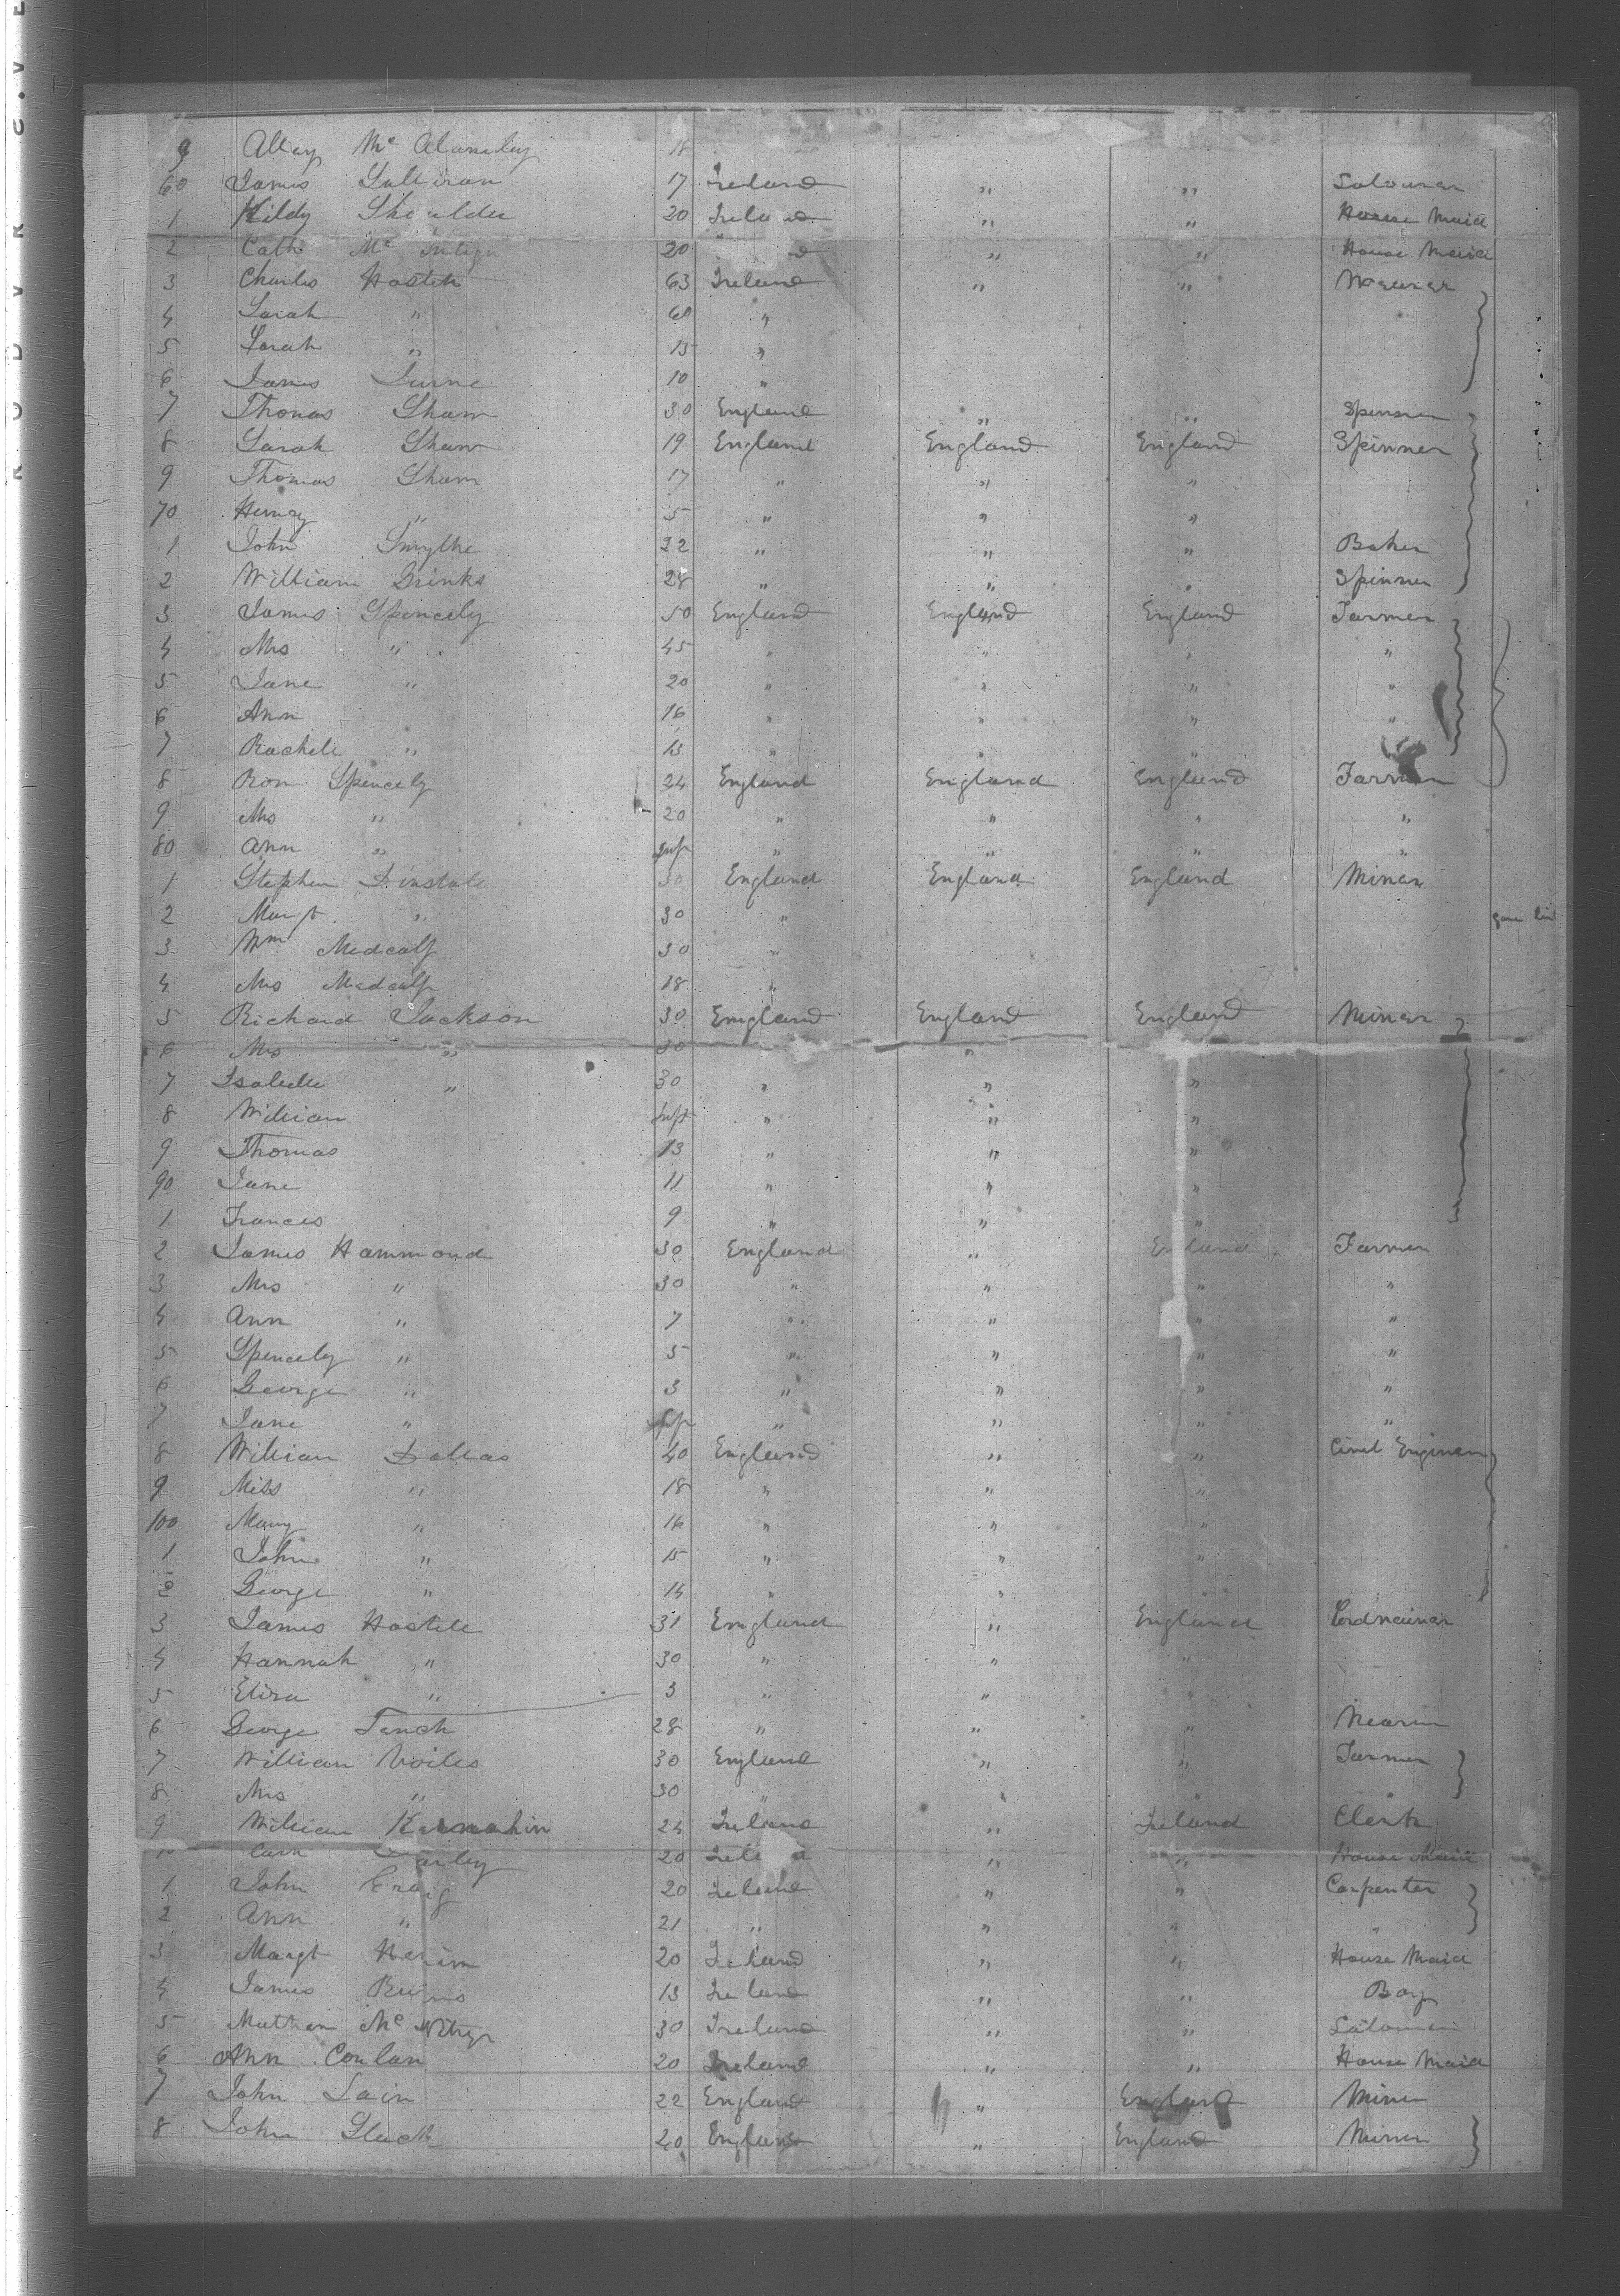 9 18
60 James Sullivan 17 Ireland " " Labourer
1 20 Ireland " " House Maid
2 Cath Mc 20 " " House Maid
3 Charles Hostele 63 Ireland " " Weaver
4 Sarah " 60 "
5 Sarah " 13 "
6 James 10 "
7 Thomas Shaw 30 England " " Spinner
8 Sarah Shaw 19 England England England Spinner
9 Thomas Shaw 17 " " "
70 Henry " 5 " " "
1 John Smythe 22 " " " Baker
2 William Brinks 28 " " " Spinner
3 James Spencely 50 England England England Farmer
4 Mrs " 45 " " " "
5 Jane " 20 " " " "
6 Ann 16 " " " "
7 Rachele " 13 " " "
8 Spencely 24 England England England Farmer
9 Mrs " 20 " " " "
80 Ann " Inf " " " "
1 Stephen 30 England England England Miner
2 Margt. " 30 "
3 Wm Medcalf 30 "
4 Mrs Medcalf 18 "
5 Richard Jackson 30 England England England Miner
6 Mrs " 30 "
7 Isabelle " 30 " " "
8 William Inft " " "
9 Thomas 13 " " "
90 Jane 11 " " "
1 Frances 9 " " "
2 James Hammond 30 England " England Farmer
3 Mrs " 30 " " " "
4 Ann " 7 " " " "
5 Spencely " 5 " " " "
6 George " 3 " " " "
7 Jane " Inf " " " "
8 William Dallas 40 England " " Civil Engineer
9 Miss " 18 " " "
100 Mary " 16 " " "
1 John " 15 " " "
2 George " 14 " "
3 James Hostele 31 England " England Cordnainer
4 Hannah " 30 " " "
5 Eliza " 3 " " "
6 George Tench 28 " " "
7 William Voiles 30 England " " Farmer
8 Mrs " 30 " " " "
9 William 24 Ireland " Ireland Clerk
20 Ireland " " House Maid
1 John Craig 20 Ireland " " Carpenter
2 Ann " 21 " " " "
3 Margt 20 Ireland " " House Maid
4 James Burns 13 Ireland " " Boy
5 Mc 30 Ireland " " Labourer
6 Ann Conlan 20 Ireland " " House Maid
7 John Lain 22 England " England Miner
8 John 20 England " England Miner